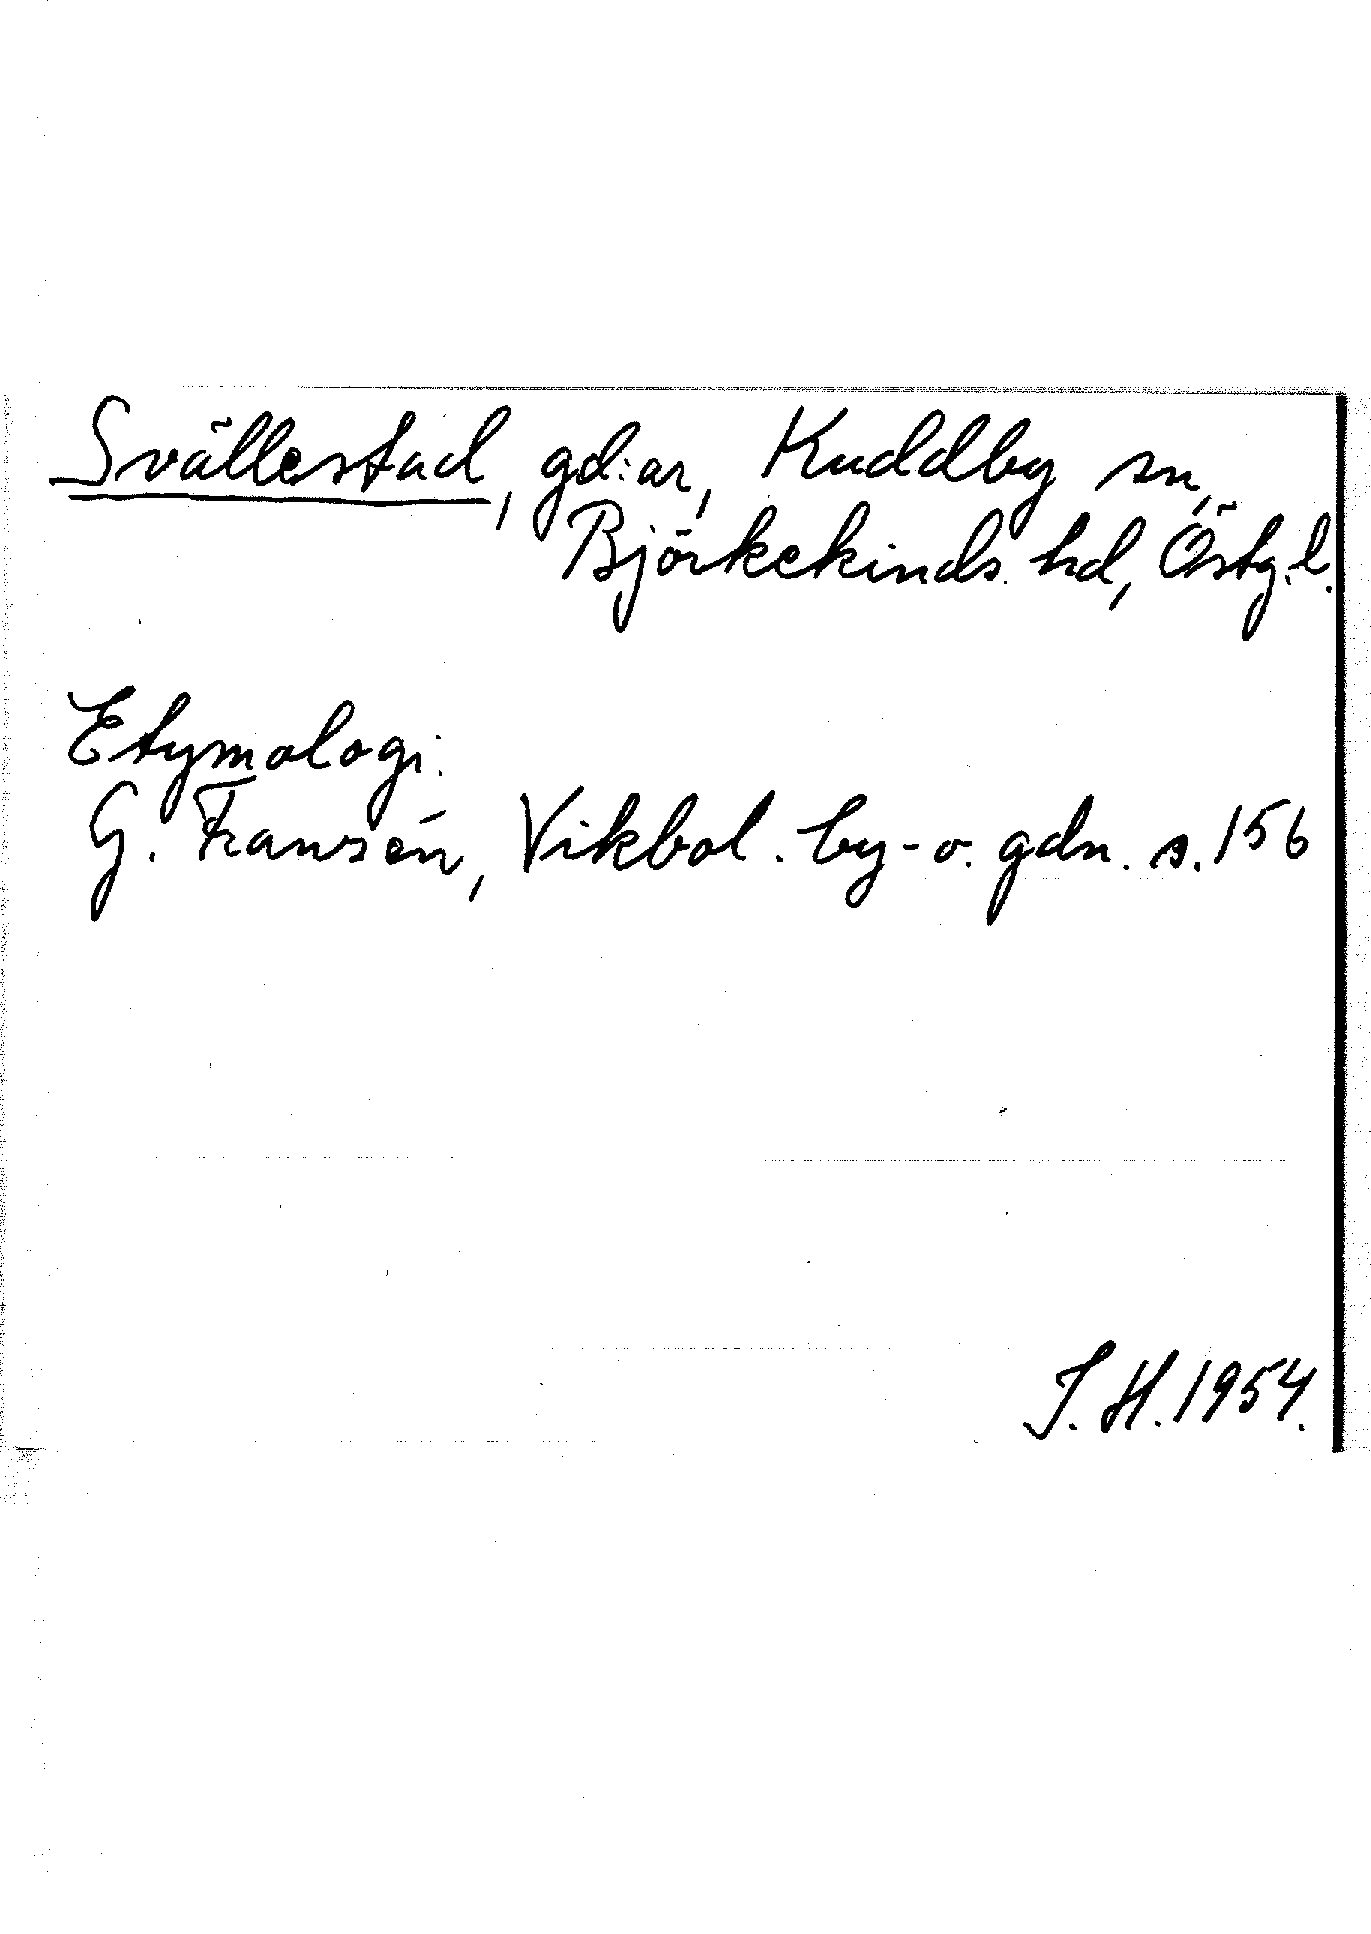 Svällestad, gd:ar, Kuddby sn,
Björkekinds hd, Östg.l.
Etymologi:
G. Franzén, Vikbol. by- o. gdn. s. 156
J. H. 1954.